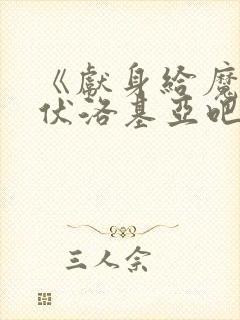 《獻身給魔
伏洛基亞吧
三人余